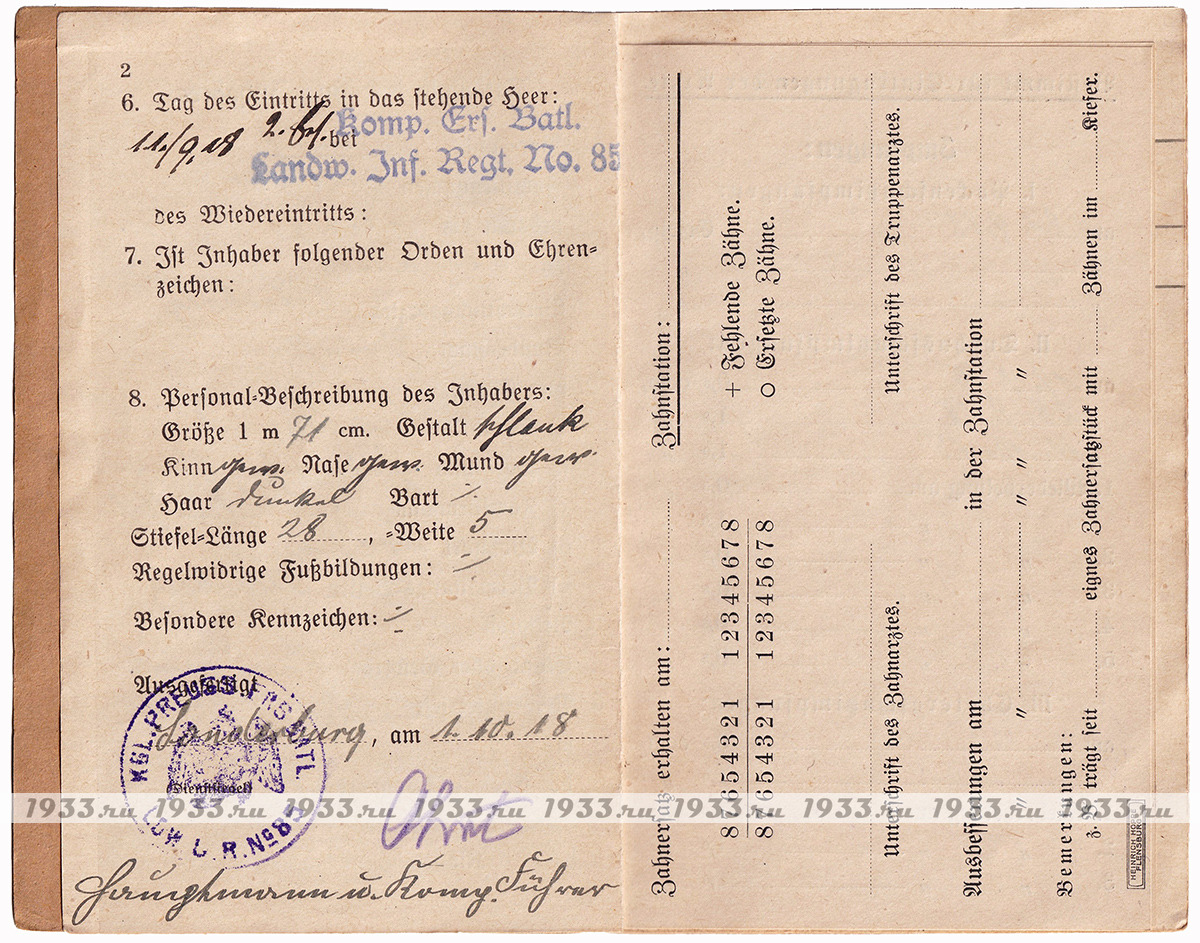 2
6. Tag des Eintritts in das stehende Heer:
11/9.18 2. Ers. bei Komp. Ers. Batl.
Landw. Inf. Regt. No. 85
des Wiedereintritts:
7. Ist Inhaber folgender Orden und Ehren-
zeichen:
8. Personal-Beschreibung des Inhabers:
Größe 1 m 71 cm. Gestalt schlank
Kinn gew. Nase gew. Mund gew.
Haar dunkel Bart ÷
Stiefel-Länge 28, -Weite 5
Regelwidrige Fußbildungen: ÷
Besondere Kennzeichen: ÷
Ausgefertigt
Sonderburg, am 1.10.18
(Dienstsiegel)
KGL. PREUSS. ERS. BATL
LDW. I. R. No 85
Hauptmann u. Komp. Führer
Zahnersatz erhalten am: Zahnstation:
87654321 12345678 + Fehlende Zähne.
87654321 12345678 o Ersetzte Zähne.
Unterschrift des Zahnarztes. Unterschrift des Truppenarztes.
Ausbesserungen am in der Zahnstation
" " " "
Bemerkungen:
z. B. trägt seit eignes Zahnersatzstück mit Zähnen im Kiefer.
FLENSBURG
1933.ru 1933.ru 1933.ru 1933.ru 1933.ru 1933.ru 1933.ru 1933.ru 1933.ru